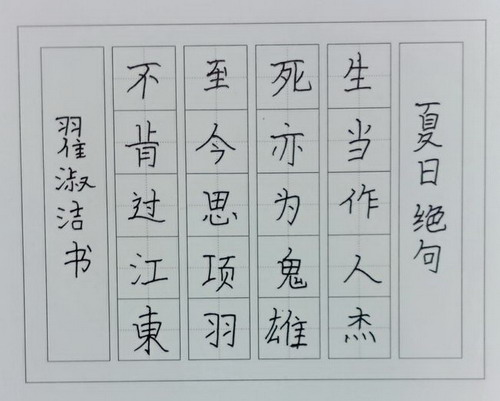 夏日绝句
生当作人杰
死亦为鬼雄
至今思项羽
不肯过江東
翟淑洁书